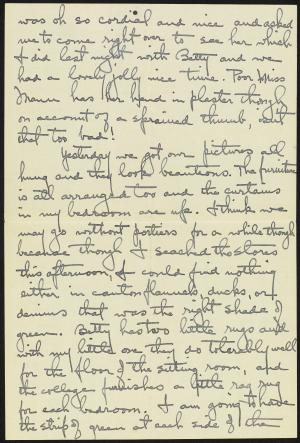 was oh so cordial and nice and asked
me to come right over to see her which
I did last night with Betty and we
had a lovely jolly nice time. Poor Miss
has her hand in plaster though
on account of a sprained thumb, isn't
that too bad!
Yesterday we got our pictures all
hung and they look beauteous. The furniture
is all arranged too and the curtains
in my bedroom are up. I think we
may go without portiers for a while though
because though I seached the stores
this afternoon, I could find nothing
either in canton flannels, ducks, or
denims that was the right shade of
green. Betty has two little rugs and
with my little one they do tolerably well
for the floor of the sitting room, and
the college furnishes a little rag rug
for each bedroom. I am going to have
the strip of green at each side of the